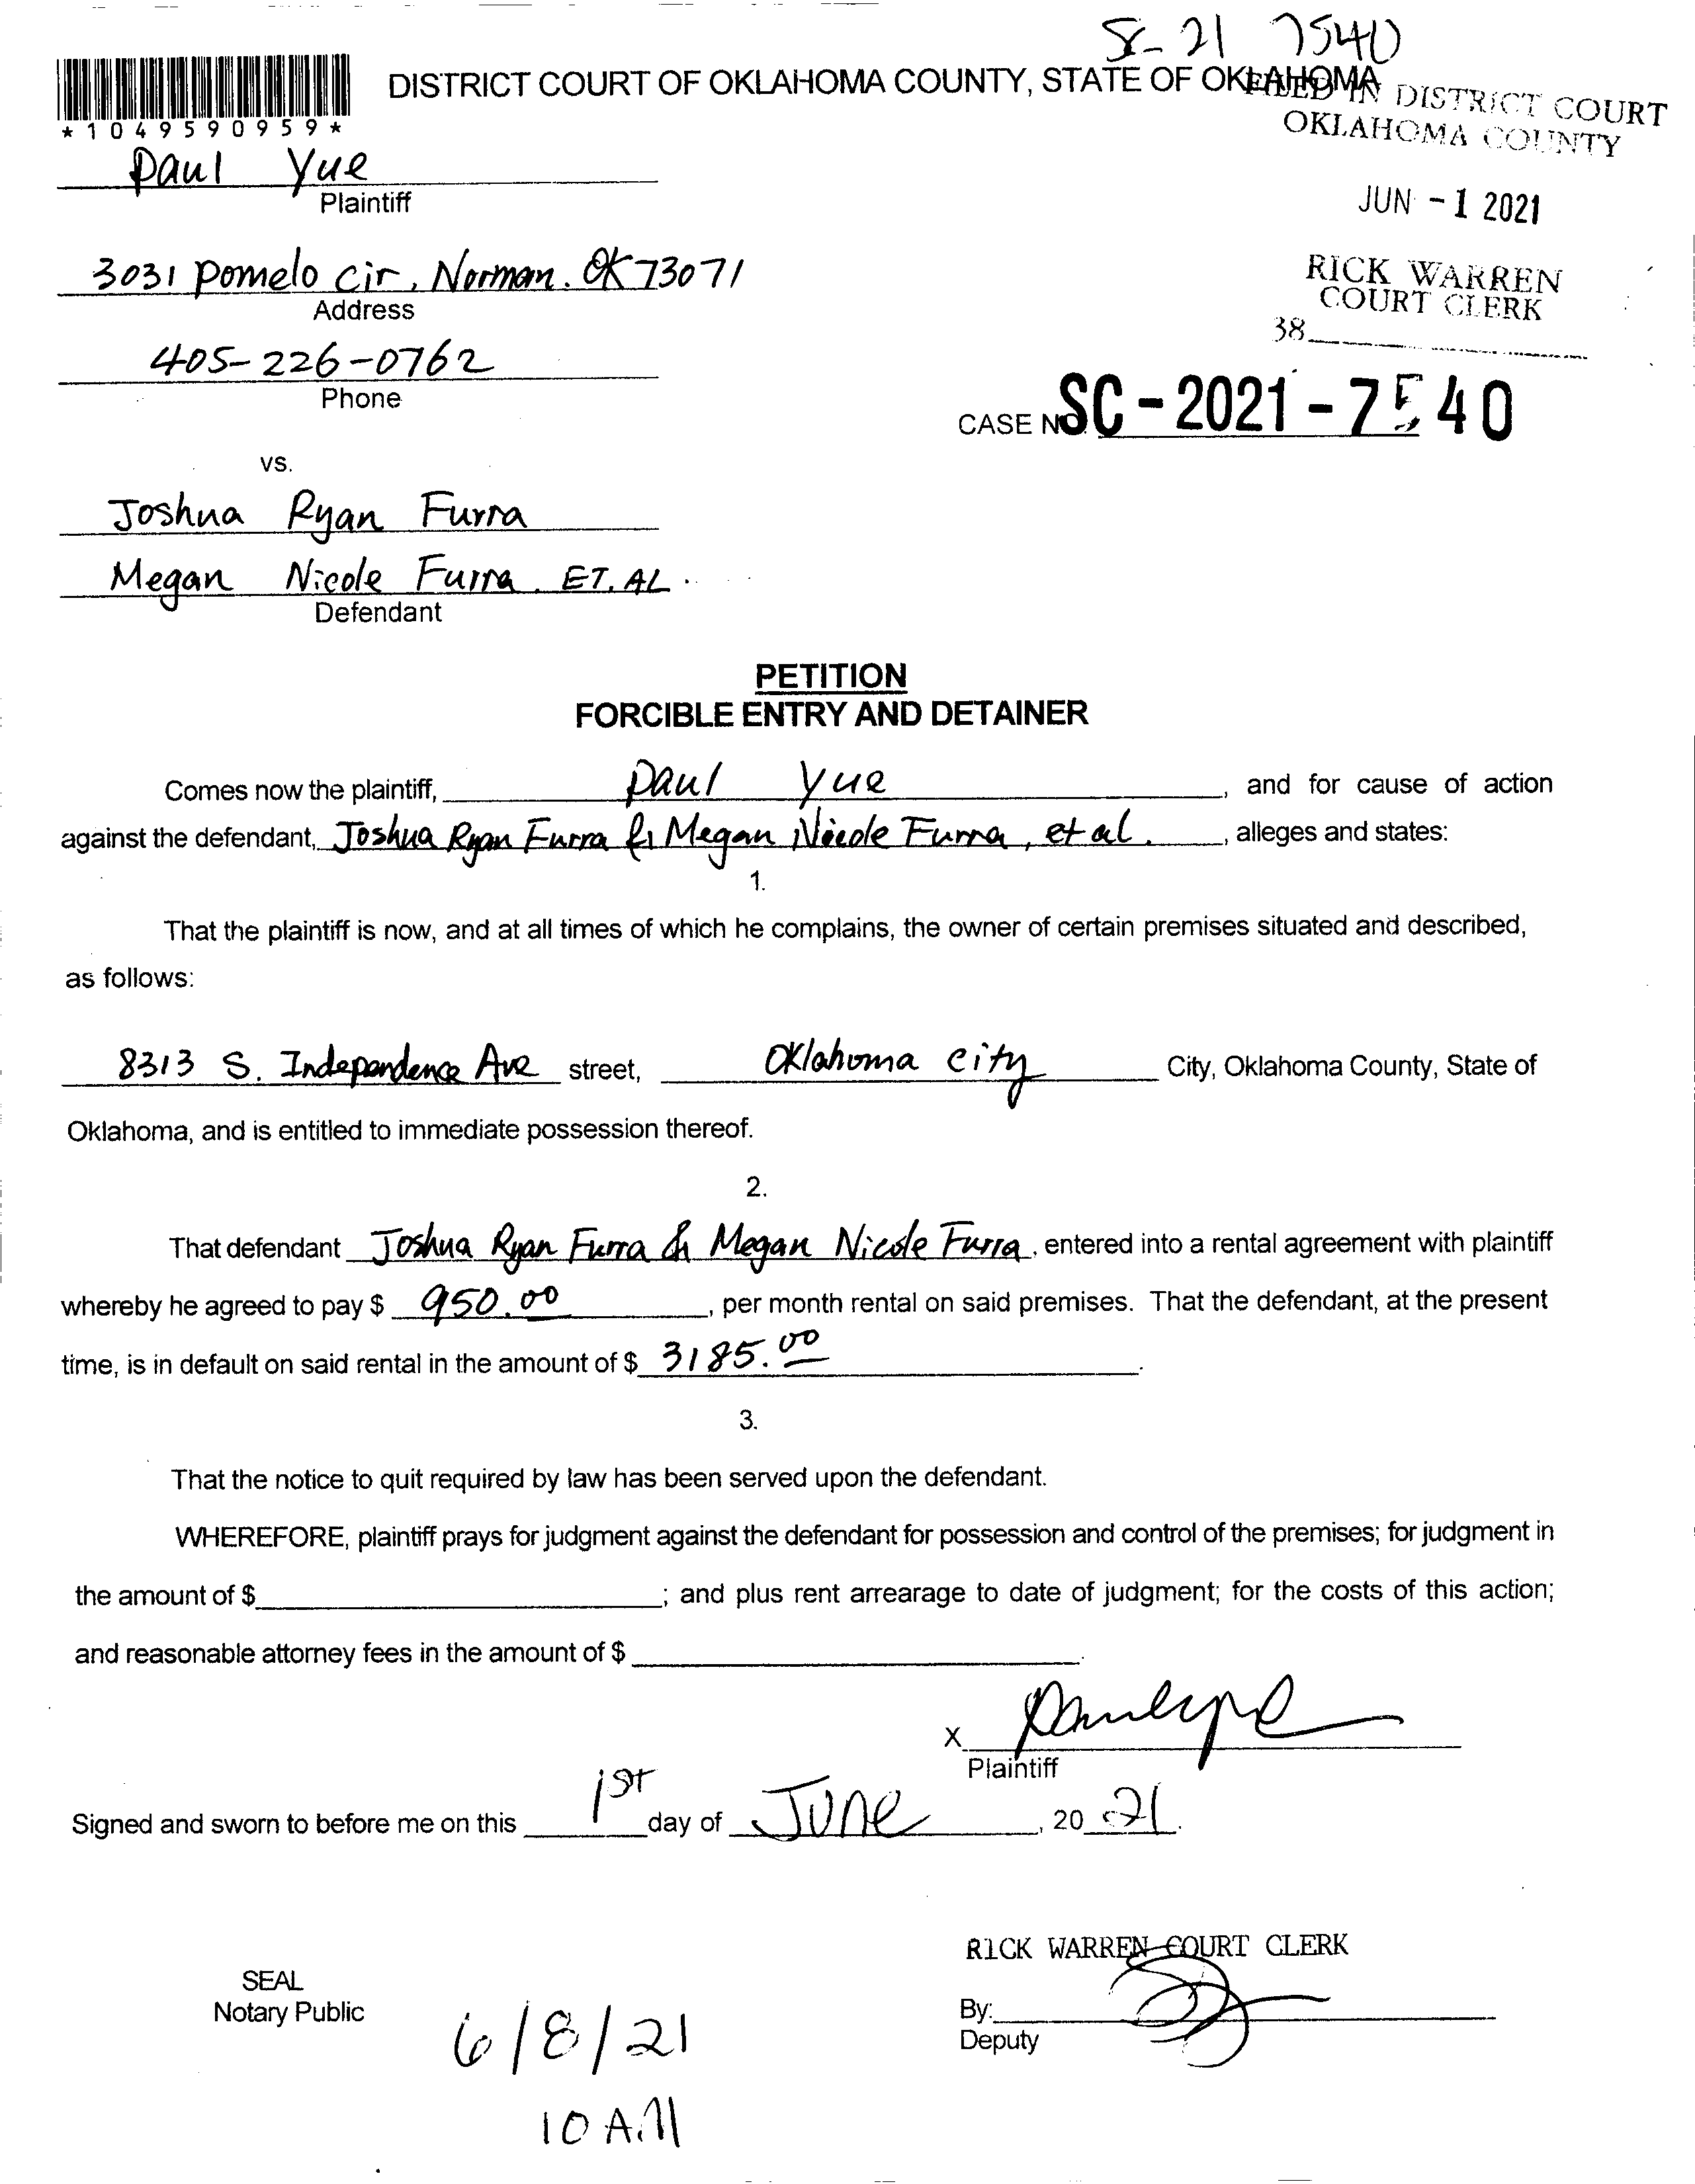 SC-21 7540
DISTRICT COURT OF OKLAHOMA COUNTY, STATE OF OKLAHOMA
FILED IN DISTRICT COURT
OKLAHOMA COUNTY
*1049590959*
Paul Yue
Plaintiff
JUN -1 2021
3031 Pomelo Cir, Norman. OK 73071
Address
RICK WARREN
COURT CLERK
38
405-226-0762
Phone
CASE NO. SC-2021-7540
vs.
Joshua Ryan Furra
Megan Nicole Furra, ET. AL.
Defendant
PETITION
FORCIBLE ENTRY AND DETAINER
Comes now the plaintiff, Paul Yue, and for cause of action
against the defendant, Joshua Ryan Furra & Megan Nicole Furra, et al., alleges and states:
1.
That the plaintiff is now, and at all times of which he complains, the owner of certain premises situated and described,
as follows:
8313 S. Independence Ave street, Oklahoma City City, Oklahoma County, State of
Oklahoma, and is entitled to immediate possession thereof.
2.
That defendant Joshua Ryan Furra & Megan Nicole Furra, entered into a rental agreement with plaintiff
whereby he agreed to pay $ 950.00, per month rental on said premises. That the defendant, at the present
time, is in default on said rental in the amount of $ 3185.00.
3.
That the notice to quit required by law has been served upon the defendant.
WHEREFORE, plaintiff prays for judgment against the defendant for possession and control of the premises; for judgment in
the amount of $ ; and plus rent arrearage to date of judgment; for the costs of this action;
and reasonable attorney fees in the amount of $ .
X
Plaintiff
Signed and sworn to before me on this 1st day of June, 20 21.
RICK WARREN COURT CLERK
SEAL
Notary Public
By:
Deputy
6/8/21
10 A.M